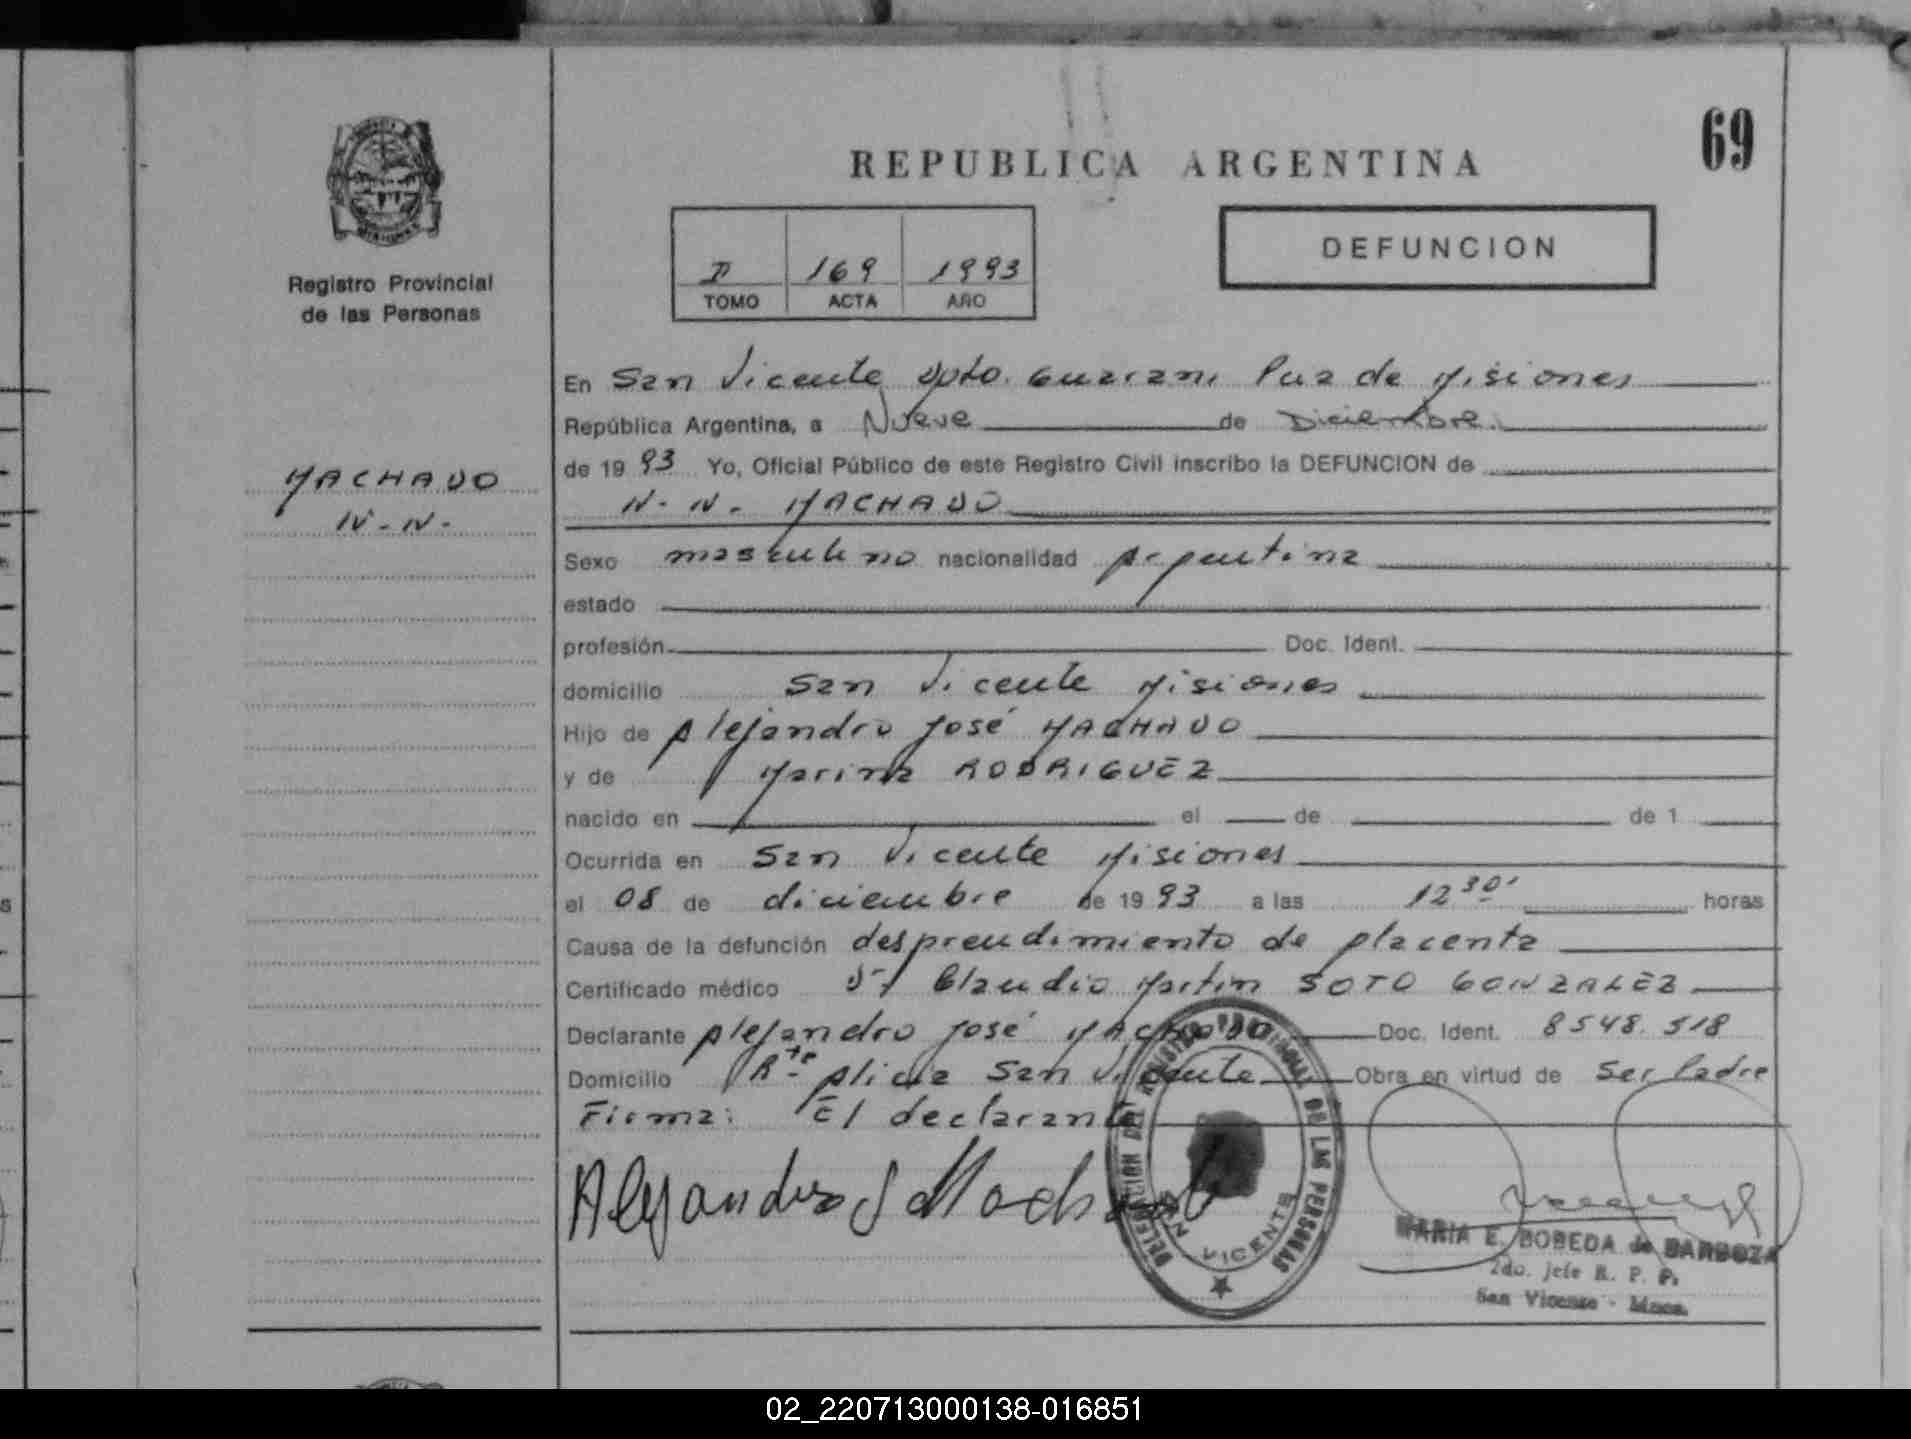 69
REPUBLICA ARGENTINA
DEFUNCION
I 169 1993
TOMO ACTA AÑO
Registro Provincial
de las Personas
MACHADO
N-N-
En San Vicente Dpto. Guarani Pcia de Misiones
República Argentina, a Nueve de Diciembre.
de 19 93 Yo, Oficial Público de este Registro Civil inscribo la DEFUNCION de
N- N- MACHADO
Sexo masculino nacionalidad Argentina
estado
profesión Doc. Ident.
domicilio San Vicente Misiones
Hijo de Alejandro José MACHADO
y de Marina RODRIGUEZ
nacido en el de de 1
Ocurrida en San Vicente Misiones
el 08 de diciembre de 19 93 a las 12 30' horas
Causa de la defunción desprendimiento de placenta
Certificado médico Dr Claudio Martin SOTO GONZALEZ
Declarante Alejandro José MACHADO Doc. Ident. 8548.518
Domicilio Alicia San Vicente Obra en virtud de Ser Padre
Firma: El declarante
Alejandro J Machado
DELEGACION DEL REGISTRO PROVINCIAL DE LAS PERSONAS
SAN VICENTE
MARIA E. BOBEDA de BARBOZA
2do. Jefe R. P. P.
San Vicente - Mnes.
02_220713000138-016851